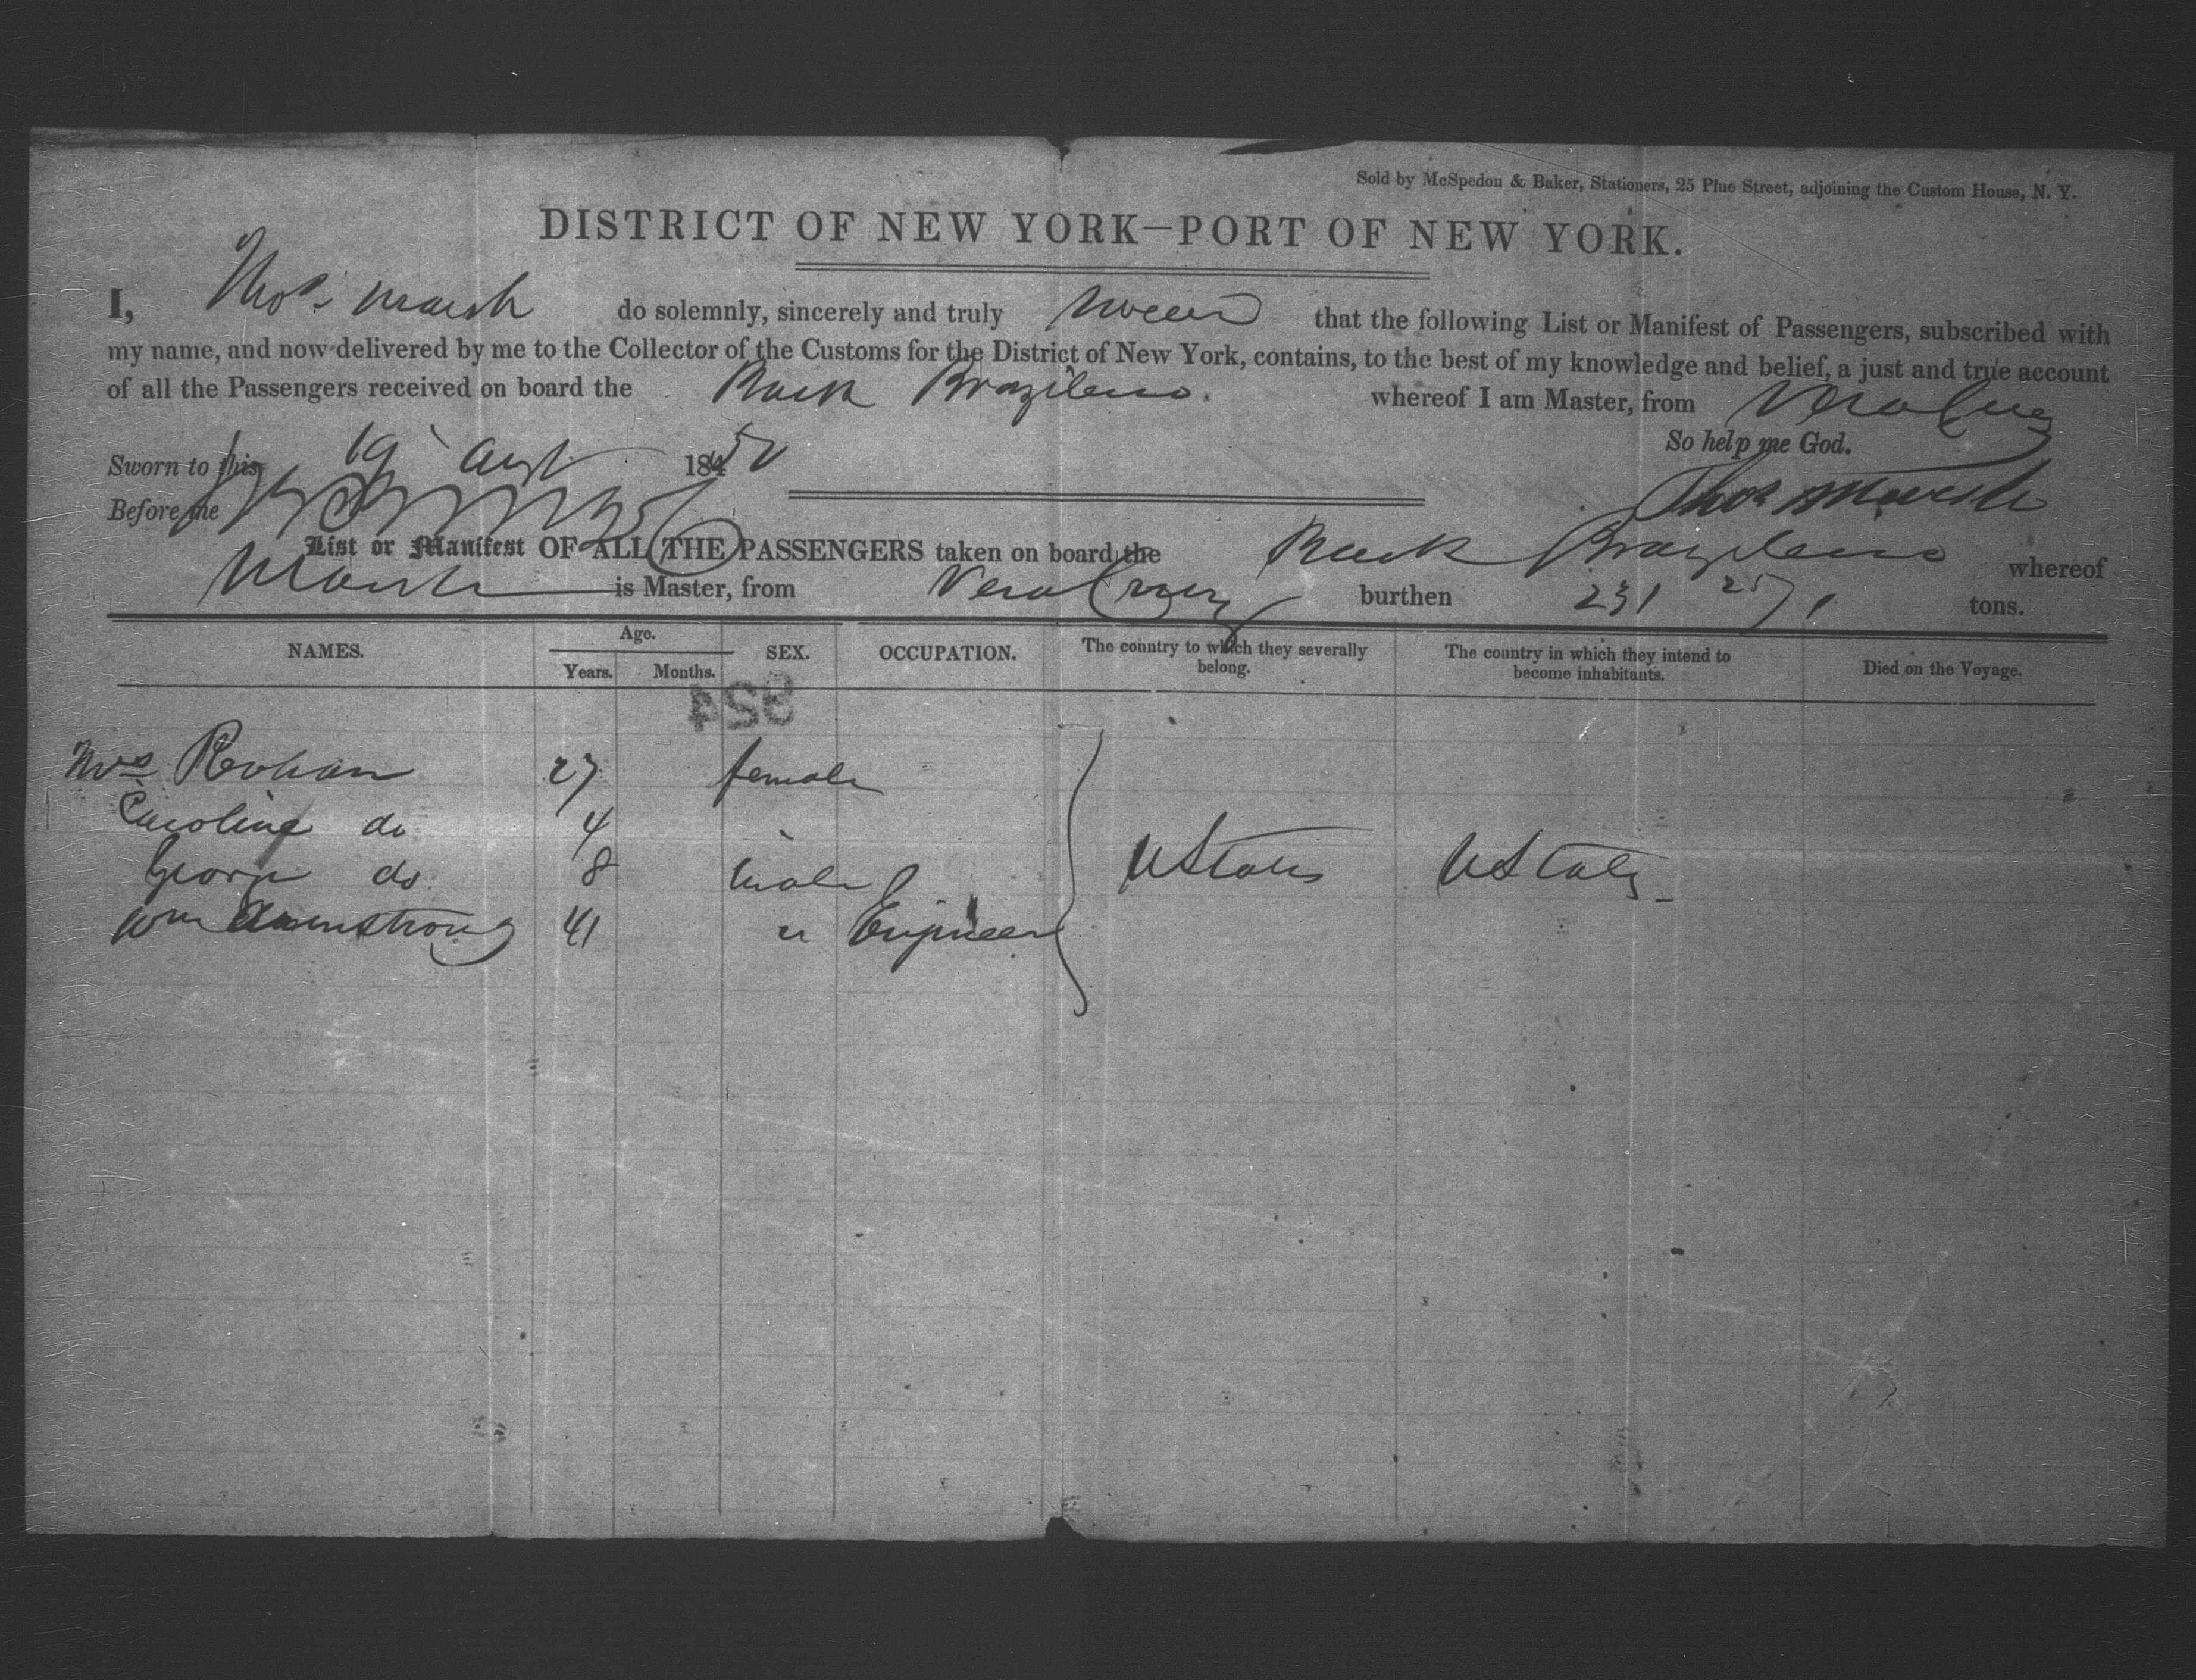 Sold by McSpedon & Baker, Stationers, 25 Pine Street, adjoining the Custom House, N. Y.
DISTRICT OF NEW YORK—PORT OF NEW YORK.
I, Thos. Marsh do solemnly, sincerely and truly swear that the following List or Manifest of Passengers, subscribed with
my name, and now delivered by me to the Collector of the Customs for the District of New York, contains, to the best of my knowledge and belief, a just and true account
of all the Passengers received on board the Bark Brazileiro. whereof I am Master, from Vera Cruz
So help me God.
Sworn to this 19 Augt 1850
Before me
Thos Marsh
List or Manifest OF ALL THE PASSENGERS taken on board the Bark Brazileiro whereof
Marsh is Master, from Vera Cruz burthen 231 tons.
NAMES. Age. SEX. OCCUPATION. The country to which they severally belong. The country in which they intend to become inhabitants. Died on the Voyage.
Years. Months.
354
Mrs Rohan 27 female
Caroline do 4
George do 8 male U States U States
Wm Armstrong 41 " Engineer